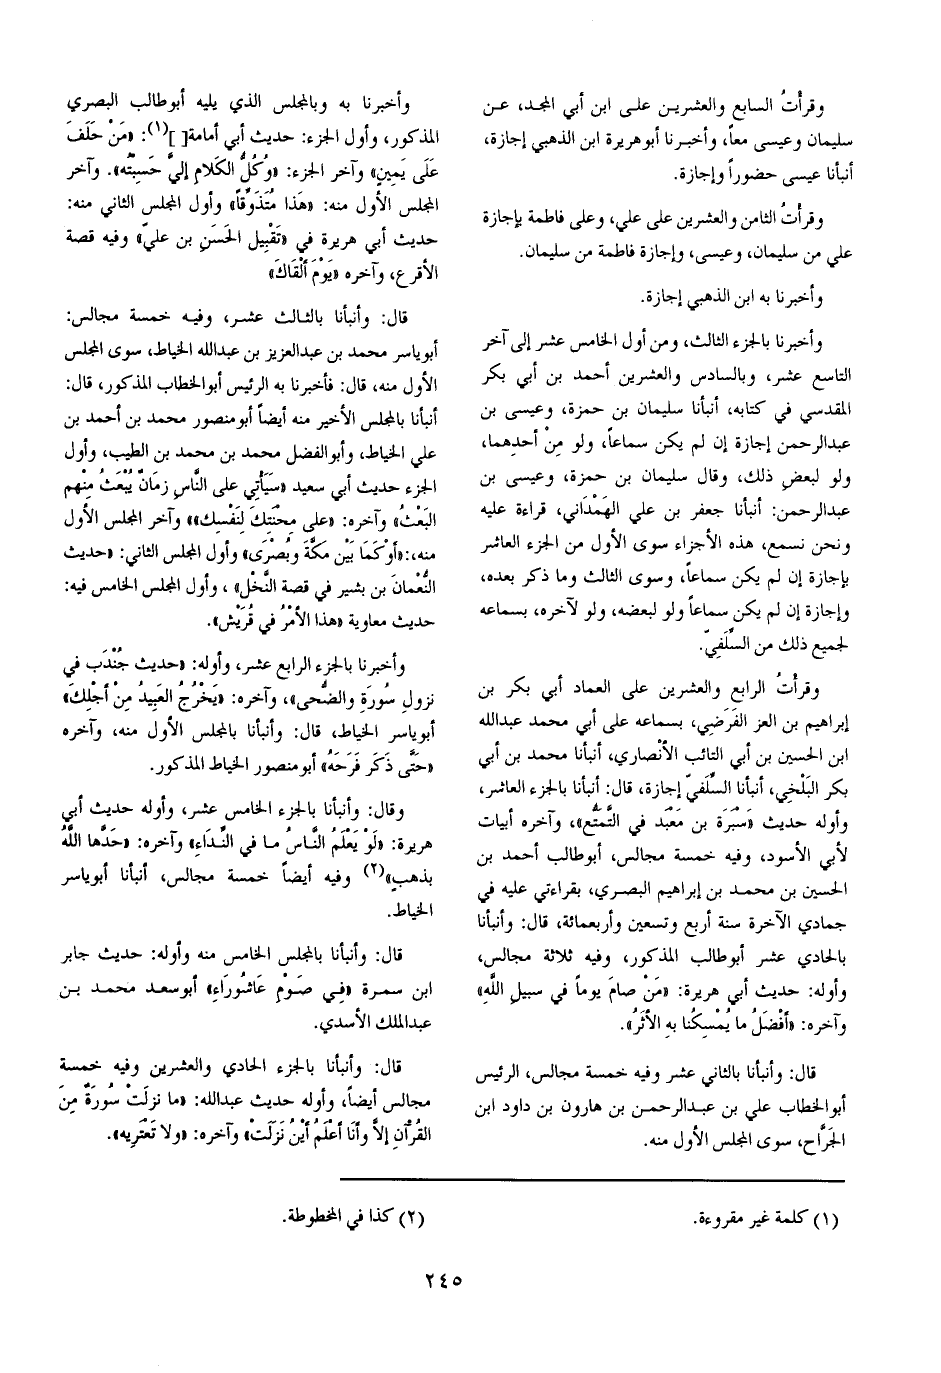 وقرأتُ السابع والعشرين على ابن أبي المجد، عن
سليمان وعيسى معاً، وأخبرنا أبوهريرة ابن الذهبي إجازة،
أنبأنا عيسى حضوراً وإجازة.
وقرأتُ الثامن والعشرين على علي، وعلى فاطمة بإجازة
علي من سليمان، وعيسى، وإجازة فاطمة من سليمان.
وأخبرنا به ابن الذهبي إجازة.
وأخبرنا بالجزء الثالث، ومن أول الخامس عشر إلى آخر
التاسع عشر، وبالسادس والعشرين أحمد بن أبي بكر
المقدسي في كتابه، أنبأنا سليمان بن حمزة، وعيسى بن
عبدالرحمن إجازة إن لم يكن سماعاً، ولو مِنْ أحدِهما،
ولو لبعضِ ذلك، وقال سليمان بن حمزة، وعيسى بن
عبدالرحمن: أنبأنا جعفر بن علي الهَمْدَاني، قراءة عليه
ونحن نسمع، هذه الأجزاء سوى الأول من الجزء العاشر
بإجازة إن لم يكن سماعاً، وسوى الثالث وما ذكر بعده،
وإجازة إن لم يكن سماعاً ولو لبعضه، ولو لآخره، بسماعه
لجميع ذلك من السِّلَفيّ.
وقرأتُ الرابع والعشرين على العماد أبي بكر بن
إبراهيم بن العز الفَرَضي، بسماعه على أبي محمد عبدالله
ابن الحسين بن أبي التائب الأنْصاري، أنبأنا محمد بن أبي
بكر البَلْخي، أنبأنا السِّلَفيّ إجازة، قال: أنبأنا بالجزء العاشر،
وأوله حديث «سَبْرَة بن مَعْبَد في التَّمتُّع»، وآخره أبيات
لأبي الأسود، وفيه خمسة مجالس، أبوطالب أحمد بن
الحسين بن محمد بن إبراهيم البصري، بقراءتي عليه في
جمادي الآخرة سنة أربع وتسعين وأربعمائة، قال: وأنبأنا
بالحادي عشر أبوطالب المذكور، وفيه ثلاثة مجالس،
وأوله: حديث أبي هريرة: «مَنْ صامَ يوماً في سبيلِ اللَّهِ»
وآخره: «أفْضَلُ ما يُمْسِكُنا بهِ الأثَرُ».
قال: وأنبأنا بالثاني عشر وفيه خمسة مجالس، الرئيس
أبوالخطاب علي بن عبدالرحمن بن هارون بن داود ابن
الجَرَّاح، سوى المجلس الأول منه.
وأخبرنا به وبالمجلس الذي يليه أبوطالب البصري
المذكور، وأول الجزء: حديث أبي أمامة[ ](١): «مَنْ حَلَفَ
عَلَى يَمِينٍ» وآخر الجزء: «وكُلُّ الكَلام إليَّ حَسِبْتُه». وآخر
المجلس الأول منه: «هَذا مُتَذَوَّقاً» وأول المجلس الثاني منه:
حديث أبي هريرة في «تَقْبِيل الحَسَنِ بن عليّ» وفيه قصة
الأقرع، وآخره «يَوْمَ ألْقَاكَ»
قال: وأنبأنا بالثالث عشر، وفيه خمسة مجالس:
أبوياسر محمد بن عبدالعزيز بن عبدالله الخياط، سوى المجلس
الأول منه، قال: فأخبرنا به الرئيس أبوالخطاب المذكور، قال:
أنبأنا بالمجلس الأخير منه أيضاً أبومنصور محمد بن أحمد بن
علي الخياط، وأبوالفضل محمد بن محمد بن الطيب، وأول
الجزء حديث أبي سعيد «سَيَأتِي على النَّاسِ زمَانٌ يُبْعَثُ مِنْهم
البَعْثُ» وآخره: «على مِحْنَتِكَ لِنَفْسِكَ»» وآخر المجلس الأول
منه،:«أوْكَمَا بَيْن مكَّةَ وبُصْرَى» وأول المجلس الثاني: «حديث
النُّعْمانَ بن بشير في قصة النَّخْل» ، وأول المجلس الخامس فيه:
حديث معاوية «هذا الأمْرُ في قُرَيْش».
وأخبرنا بالجزء الرابع عشر، وأوله: «حديث جُنْدَب في
نزول سُورَةِ والضُّحى»، وآخره: «يَخْرُجُ العَبِيدُ مِنْ أجْلِكَ»
أبوياسر الخياط، قال: وأنبأنا بالمجلس الأول منه، وآخره
«حَتَّى ذَكَر فَرَحَهُ» أبومنصور الخياط المذكور.
وقال: وأنبأنا بالجزء الخامس عشر، وأوله حديث أبي
هريرة: «لَوْ يَعْلَم النَّاسُ ما في النِّدَاءِ» وآخره: «حَدَّها اللَّهُ
بذهبٍ»(٢) وفيه أيضاً خمسة مجالس، أنبأنا أبوياسر
الخياط.
قال: وأنبأنا بالمجلس الخامس منه وأوله: حديث جابر
ابن سمرة «فِي صَوْمِ عَاشُورَاءِ» أبوسعد محمد بن
عبدالملك الأسدي.
قال: وأنبأنا بالجزء الحادي والعشرين وفيه خمسة
مجالس أيضاً، وأوله حديث عبدالله: «ما نزلَتْ سُورَةٌ مِنَ
القُرآنِ إلاَّ وأنَا أعْلَمُ أيْنُ نَزَلَتْ» وآخره: «ولا تَعْتَرِيه».
(١) كلمة غير مقروءة.
(٢) كذا في المخطوطة.
٢٤٥